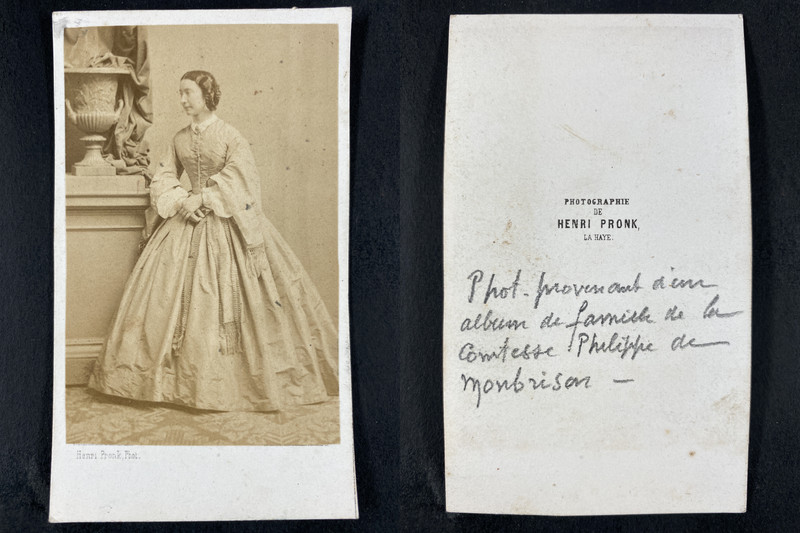 Henri Pronk, Phot.
PHOTOGRAPHIE
DE
HENRI PRONK,
LA HAYE.
Phot. provenant d'un
album de famille de la
Comtesse Philippe de
Monbrison —